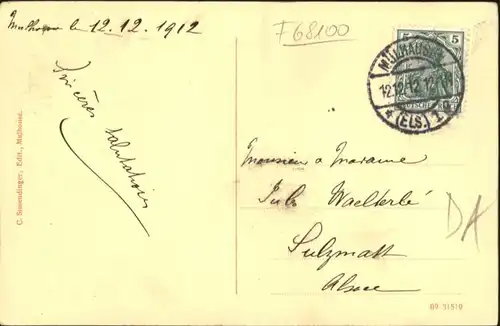 Mulhouse le 12.12.1912
F68100
5 5
MÜLHAUSEN
12.12.12
* (ELS.) 1
Sincères salutations
C. Simendinger, Edit., Mulhouse.
Monsieur & Madame
Jule Waelterlé
Sulzmatt
Alsace
DA
09 31519